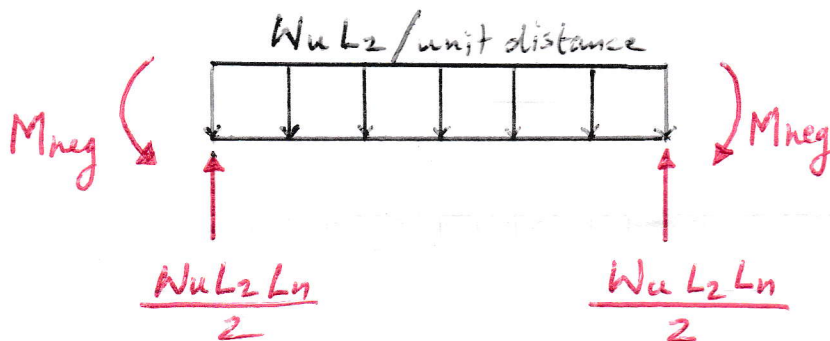 Wu L2 / unit distance
Mneg
Mneg
Wu L2 Ln
2
Wu L2 Ln
2